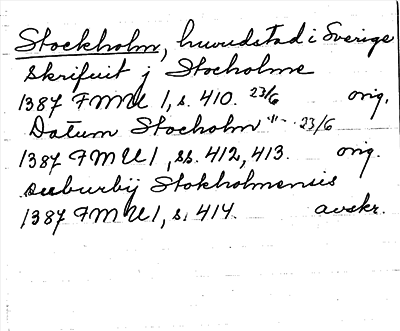 Stockholm, huvudstad i Sverige
skrifuit j Stocholme
1387 FMU 1, s. 410. 23/6 orig.
Datum Stocholm -"- 23/6
1387 FMU 1, ss. 412, 413. orig.
suburbij Stokholmensis
1387 FMU 1, s. 414. avskr.